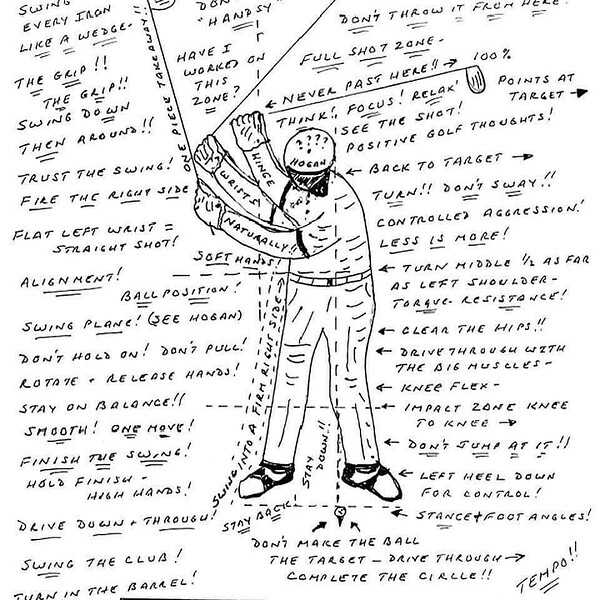 SWING
EVERY IRON
LIKE A WEDGE-
THE GRIP!!
THE GRIP!!
SWING DOWN
THEN AROUND!!
TRUST THE SWING!
FIRE THE RIGHT SIDE
FLAT LEFT WRIST =
STRAIGHT SHOT!
ALIGNMENT!
BALL POSITION!
SWING PLANE! (SEE HOGAN)
DON'T HOLD ON! DON'T PULL!
ROTATE + RELEASE HANDS!
STAY ON BALANCE!!
SMOOTH! ONE MOVE!
FINISH THE SWING!
HOLD FINISH -
HIGH HANDS!
DRIVE DOWN + THROUGH!
SWING THE CLUB!
TURN IN THE BARREL!
ONE PIECE TAKEAWAY!!
DON'T
"HANDSY"
HAVE I
WORKED ON
THIS
ZONE?
DON'T THROW IT FROM HERE!
FULL SHOT ZONE-
NEVER PAST HERE!!
100%
POINTS AT
TARGET
THINK! FOCUS! RELAX!
SEE THE SHOT!
POSITIVE GOLF THOUGHTS!
????
HOGAN
HINGE
WRISTS
NATURALLY!!
SOFT HANDS!
BACK TO TARGET
TURN!! DON'T SWAY!!
CONTROLLED AGGRESSION!
LESS IS MORE!
TURN MIDDLE 1/2 AS FAR
AS LEFT SHOULDER-
TORQUE-RESISTANCE!
CLEAR THE HIPS!!
DRIVE THROUGH WITH
THE BIG MUSCLES-
KNEE FLEX-
IMPACT ZONE KNEE
TO KNEE
DON'T JUMP AT IT!!
LEFT HEEL DOWN
FOR CONTROL!
STANCE + FOOT ANGLES!
SWING INTO A FIRM RIGHT SIDE
STAY DOWN!!
STAY BACK
DON'T MAKE THE BALL
THE TARGET - DRIVE THROUGH
COMPLETE THE CIRLLE!!
TEMPO!!